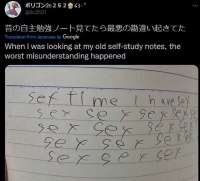 ポリゴン
昔の自主勉強ノート見てたら最悪の勘違い起きてた
Translated from Japanese by Google
When I was looking at my old self-study notes, the
worst misunderstanding happened
set time I have set
sex se x sex sex
sex sex sex
sex sex sex
sex sex sex